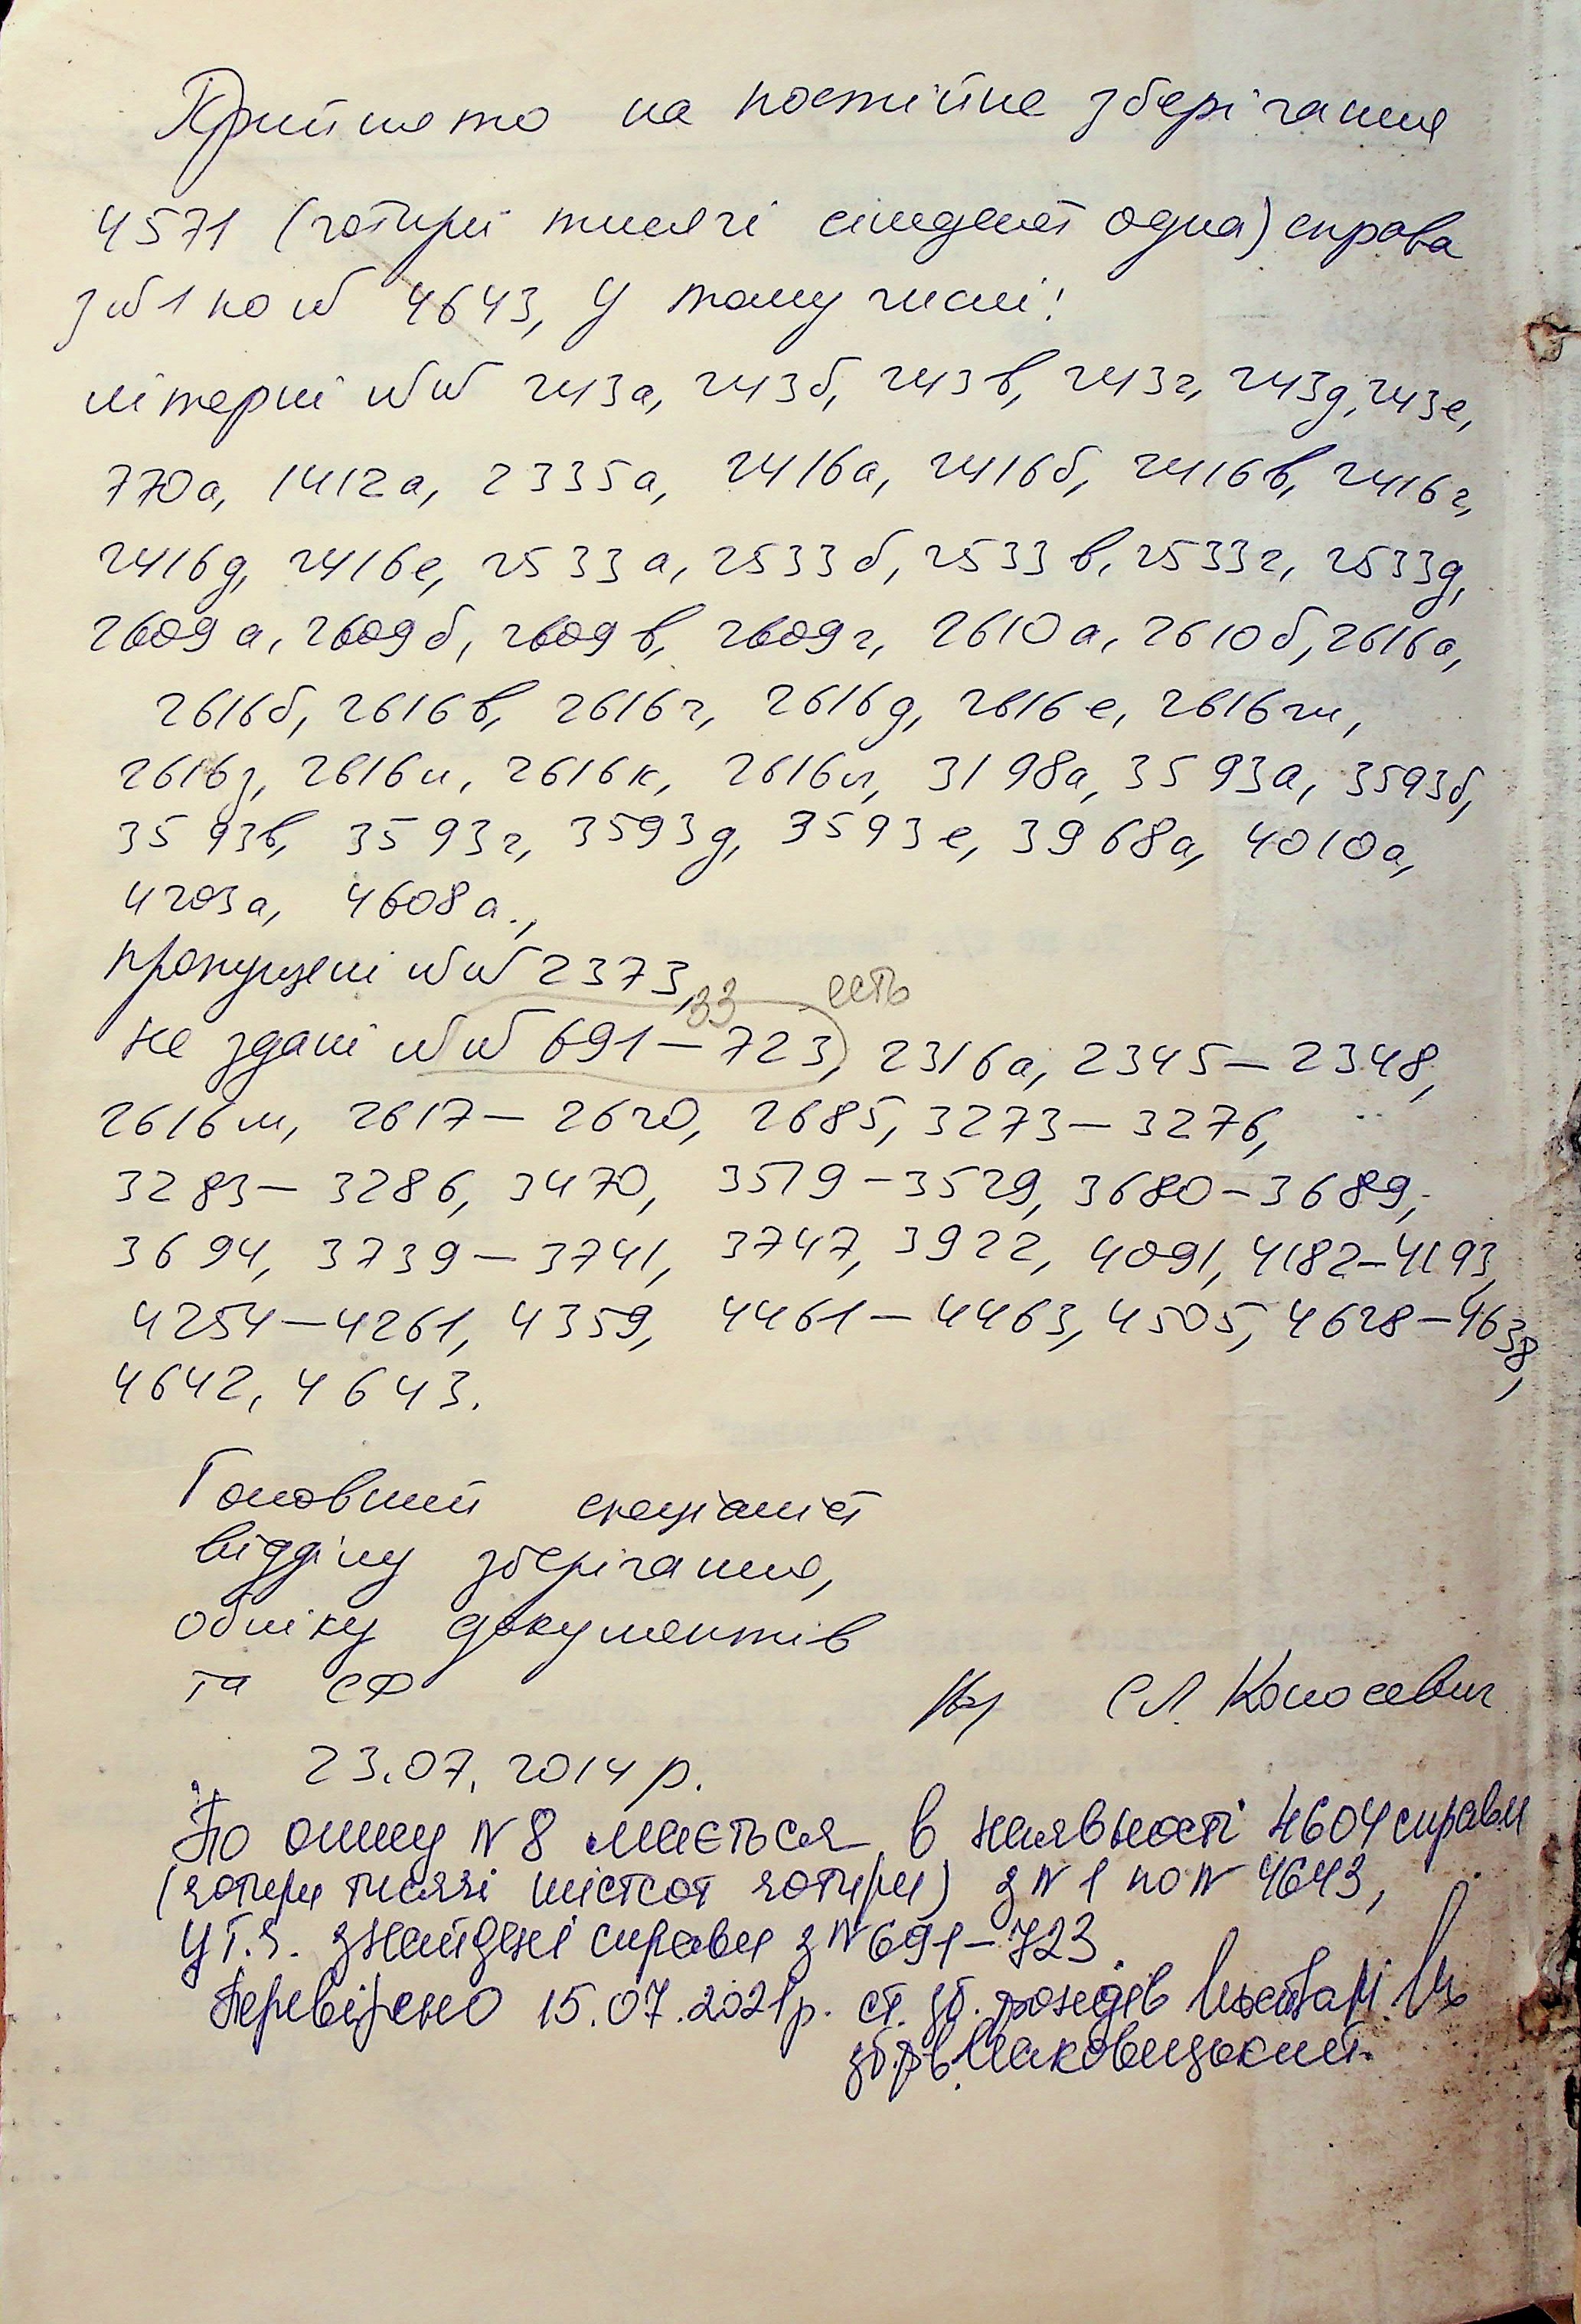 Прийнято на постійне зберігання
4571 (чотири тисячі сімдесят одна) справа
з №1 по № 4643, у тому числі:
літерні №№ 243а, 243б, 243в, 243г, 243д, 243е,
770а, 1412а, 2335а, 2416а, 2416б, 2416в, 2416г,
2416д, 2416е, 2533а, 2533б, 2533в, 2533г, 2533д,
2609а, 2609б, 2609в, 2609г, 2610а, 2610б, 2616а,
2616б, 2616в, 2616г, 2616д, 2616е, 2616ж,
2616з, 2616и, 2616к, 2616л, 3198а, 3593а, 3593б,
3593в, 3593г, 3593д, 3593е, 3968а, 4010а,
4203а, 4608а.,
пропущені №№ 2373,
33 есть
не здані №№ 691–723, 2316а, 2345–2348,
2616м, 2617–2620, 2685, 3273–3276,
3283–3286, 3470, 3519–3529, 3680–3689,
3694, 3739–3741, 3747, 3922, 4091, 4182–4193,
4254–4261, 4359, 4461–4463, 4505, 4628–4638,
4642, 4643.
Головний спеціаліст
відділу зберігання,
обліку документів
та СФ С.Л. Колосевич
23.07.2014 р.
По опису №8 мається в наявності 4604 справи
(чотири тисячі шістсот чотири) з №1 по № 4643,
у т.ч. знайдені справи з №691–723.
Перевірено 15.07.2021р. ст. зб. фондів
зб. ф-в Маковицький